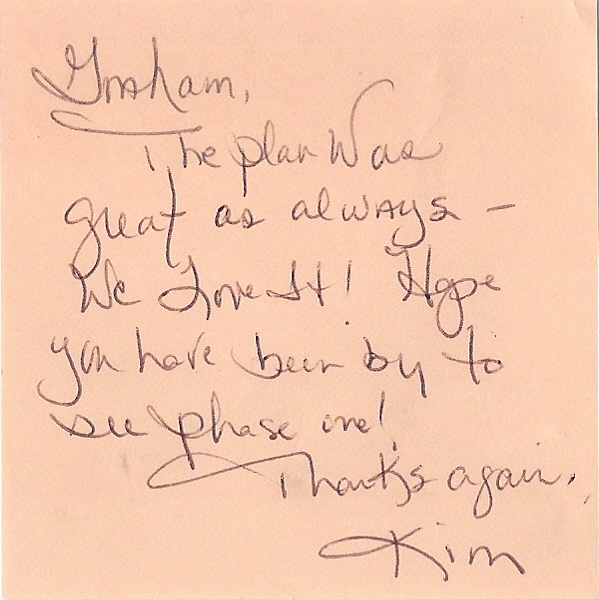 Graham,
The plan was
great as always -
We Love It! Hope
you have been by to
see phase one!
Thanks again,
Kim